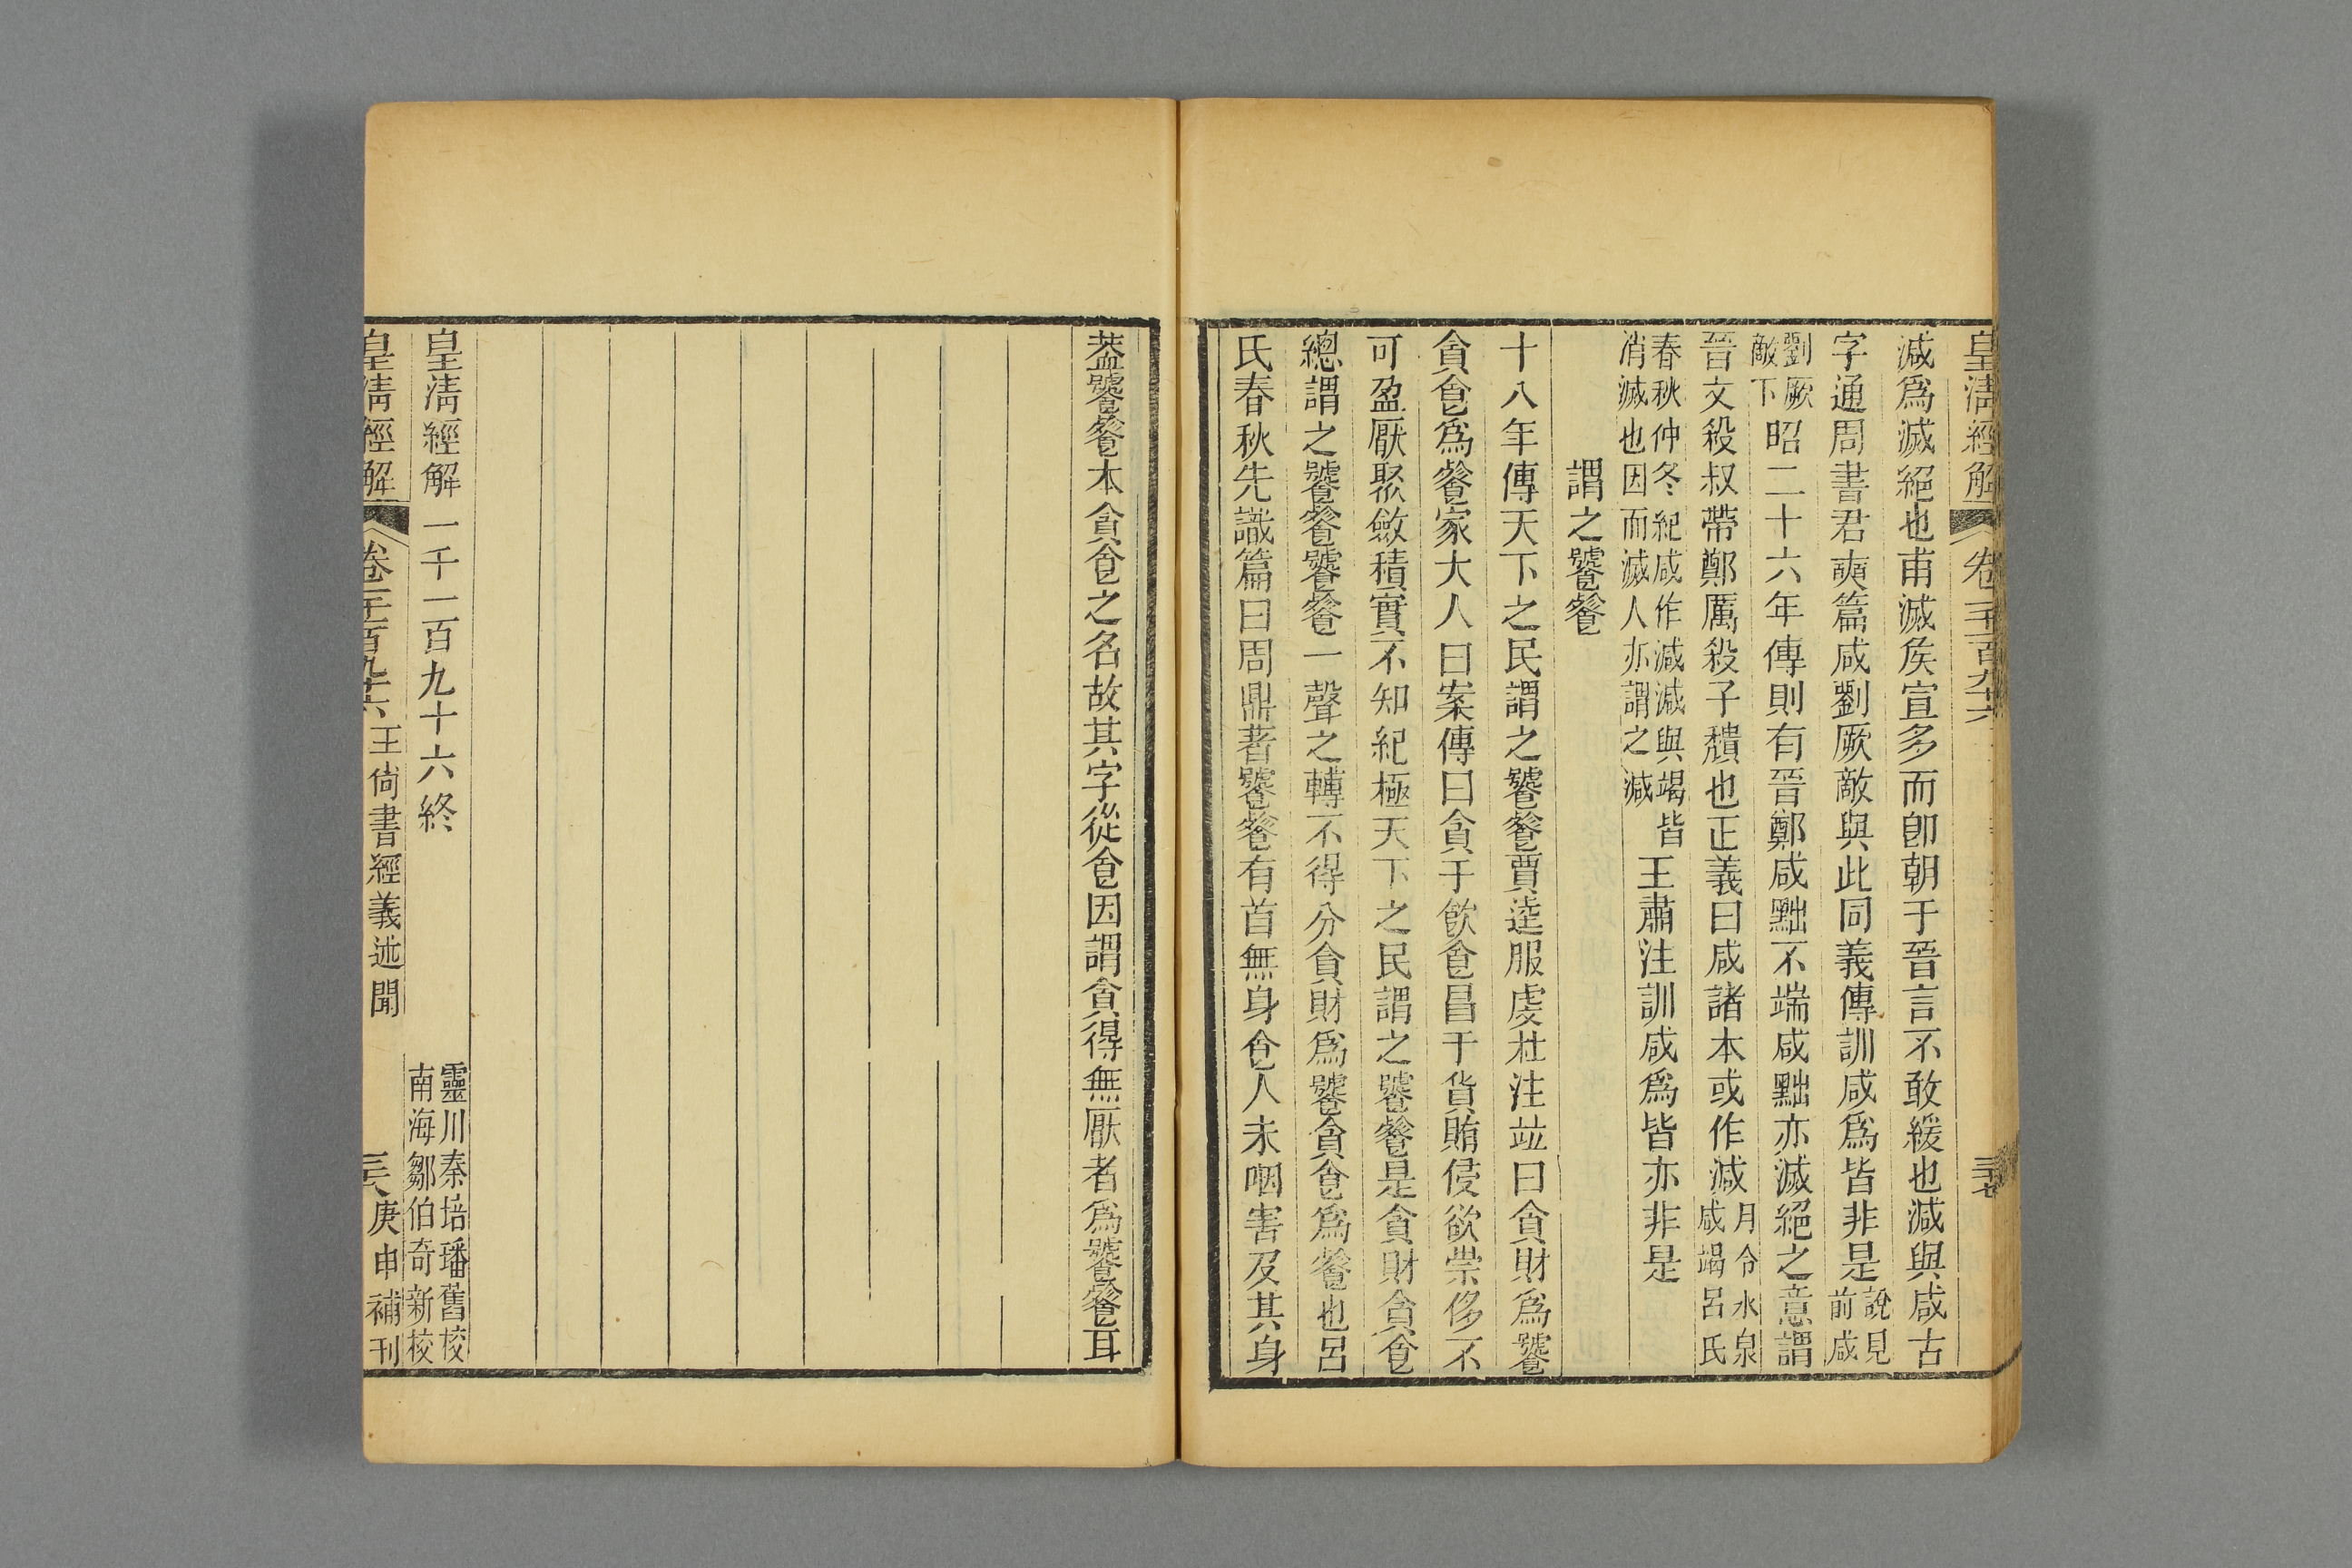 皇清經解 卷一千一百九十六 三十七
減爲滅絕也甫滅侯宣多而卽朝于晉言不敢緩也減與咸古
字通周書君奭篇咸劉厥敵與此同義傳訓咸爲皆非是說見前咸
劉厥敵下昭二十六年傳則有晉鄭咸黜不端咸黜亦滅絕之意謂
晉文殺叔帶鄭厲殺子頹也正義曰咸諸本或作減月令水泉咸竭呂氏
春秋仲冬紀咸作減減與竭皆消滅也因而滅人亦謂之減王肅注訓咸爲皆亦非是
謂之饕餮
十八年傳天下之民謂之饕餮賈逵服虔杜注竝曰貪財爲饕
貪食爲餮家大人曰案傳曰貪于飮食冒于貨賄侵欲崇侈不
可盈厭聚斂積實不知紀極天下之民謂之饕餮是貪財貪食
總謂之饕餮饕餮一聲之轉不得分貪財爲饕貪食爲餮也呂
氏春秋先識篇曰周鼎著饕餮有首無身食人未咽害及其身
葢饕餮本貪食之名故其字從食因謂貪得無厭者爲饕餮耳
皇清經解一千一百九十六終
靈川秦培璠舊校
南海鄒伯奇新校
皇清經解 卷一千一百九十六 王尙書經義述聞 庚申補刊